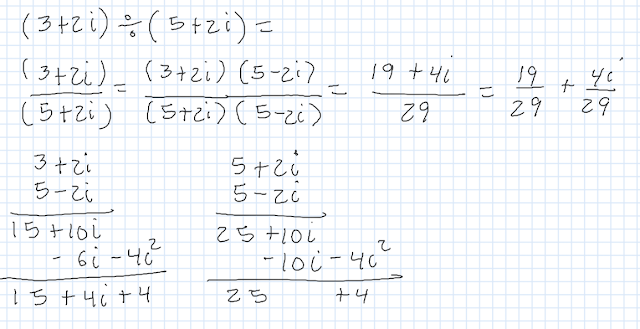 (3+2i) ÷ (5+2i) =
(3+2i)/(5+2i) = (3+2i)(5-2i)/(5+2i)(5-2i) = 19+4i/29 = 19/29 + 4i/29
3+2i
5-2i
15+10i
-6i-4i²
15+4i+4
5+2i
5-2i
25+10i
-10i-4i²
25 +4